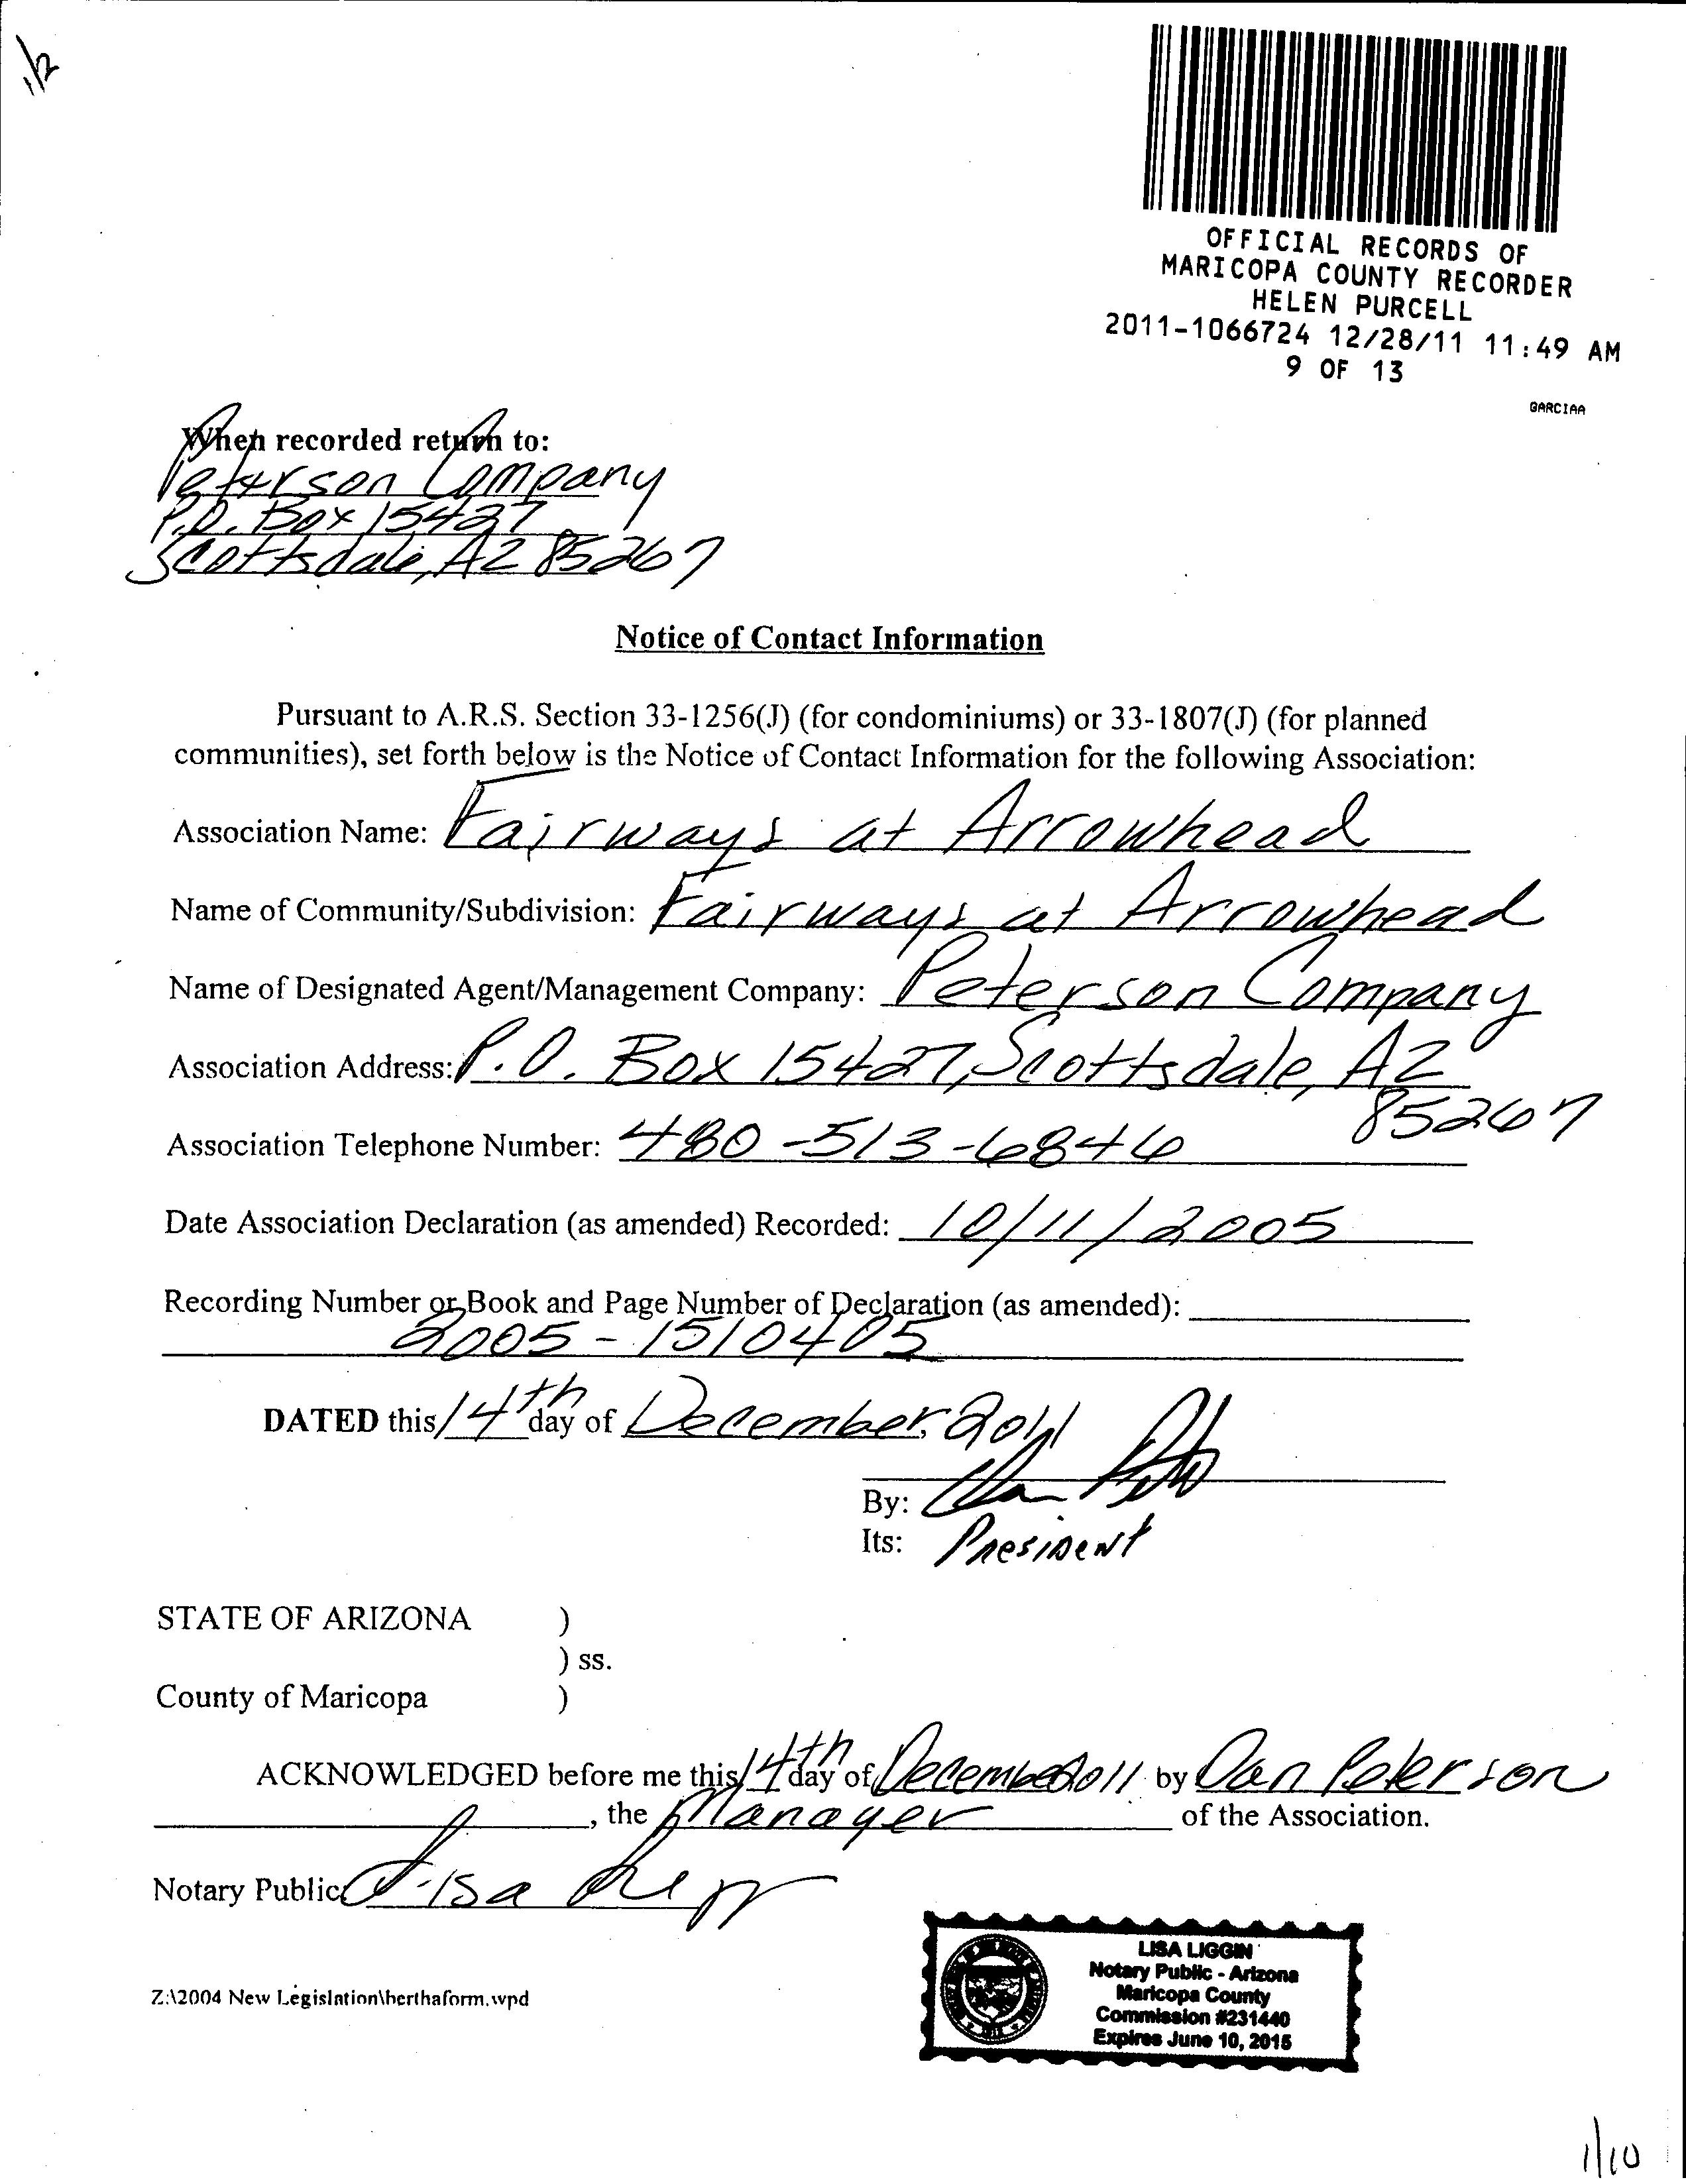 1/2
OFFICIAL RECORDS OF
MARICOPA COUNTY RECORDER
HELEN PURCELL
2011-1066724 12/28/11 11:49 AM
9 OF 13
GARCIAA
When recorded return to:
Peterson Company
P.O. Box 15427
Scottsdale, AZ 85267
Notice of Contact Information
Pursuant to A.R.S. Section 33-1256(J) (for condominiums) or 33-1807(J) (for planned
communities), set forth below is the Notice of Contact Information for the following Association:
Association Name: Fairways at Arrowhead
Name of Community/Subdivision: Fairways at Arrowhead
Name of Designated Agent/Management Company: Peterson Company
Association Address: P.O. Box 15427, Scottsdale, AZ
85267
Association Telephone Number: 480-513-6846
Date Association Declaration (as amended) Recorded: 10/11/2005
Recording Number or Book and Page Number of Declaration (as amended):
2005-1510405
DATED this 14th day of December, 2011
By:
Its: President
STATE OF ARIZONA )
) ss.
County of Maricopa )
ACKNOWLEDGED before me this 14th day of December 2011 by Dan Peterson
, the Manager of the Association.
Notary Public: Lisa
LISA LIGGIN
Notary Public - Arizona
Maricopa County
Commission #231440
Expires June 10, 2015
Z:\2004 New Legislation\herthaform.wpd
1/10